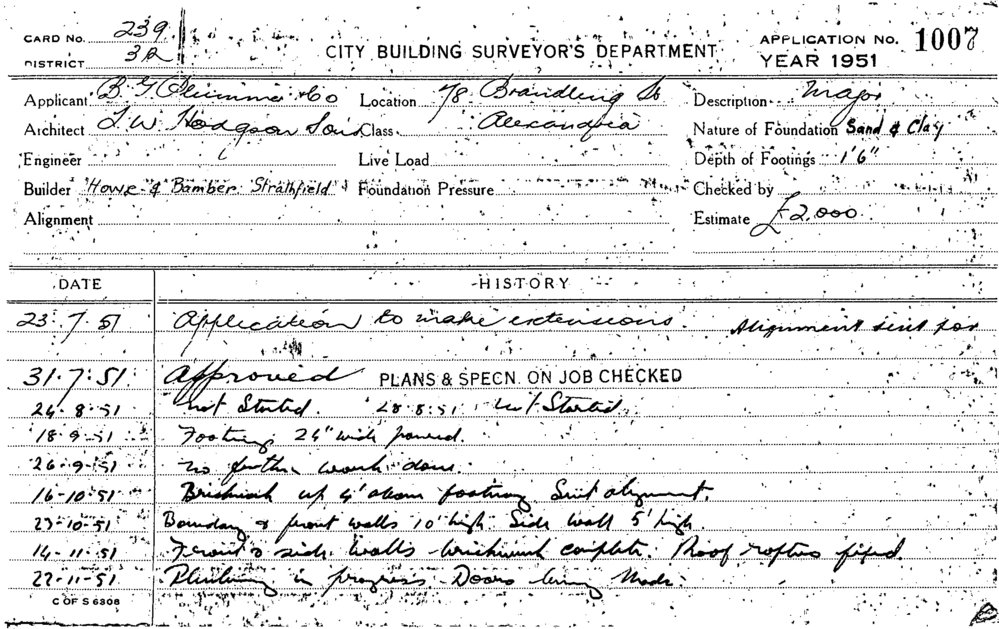 CARD No. 239
DISTRICT 3A
CITY BUILDING SURVEYOR'S DEPARTMENT
APPLICATION No. 1007
YEAR 1951
Applicant B. G. Plummer & Co Location 78 Brandling St Description Major
Architect L. W. Hodgson Sons Class Alexandria Nature of Foundation Sand & Clay
Engineer Live Load Depth of Footings 1'6"
Builder Howe & Bamber Strathfield Foundation Pressure Checked by
Alignment Estimate £2,000
DATE HISTORY
23.7.51 Application to make extensions. Alignment sent for
31.7.51 Approved PLANS & SPECN. ON JOB CHECKED
24.8.51 Not Started. 28.8.51 Not Started
18.9.51 Footings 24" wide poured.
26.9.51 no further work done.
16-10-51 Brickwork up 4' above footings Sent alignment.
23-10-51 Boundary & front walls 10' high Side wall 5' high.
14-11-51 Front & side walls brickwork complete. Roof rafters fixed
22-11-51 Plumbing in progress Doors being Made.
C OF S 6308